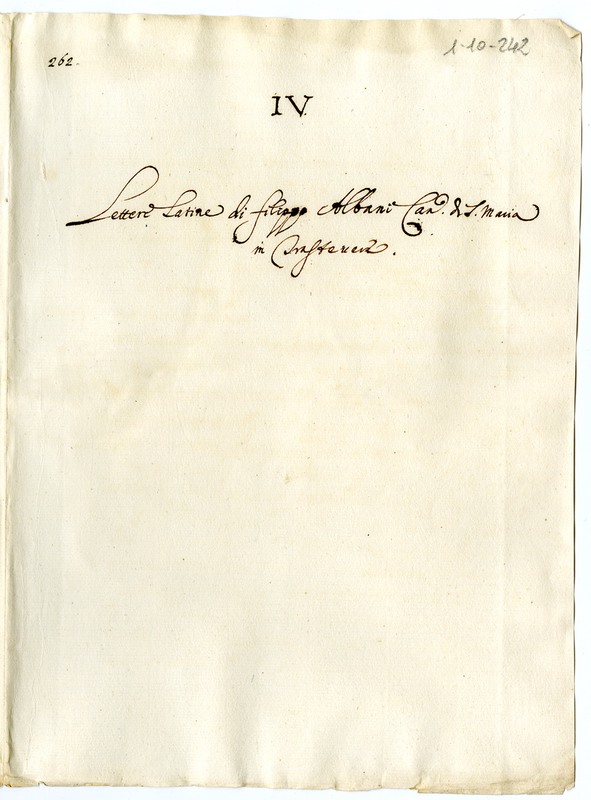 262.
1-10-242
IV.
Lettere Latine di filippo Albani Can.º di S. Maria
in Trastevere.